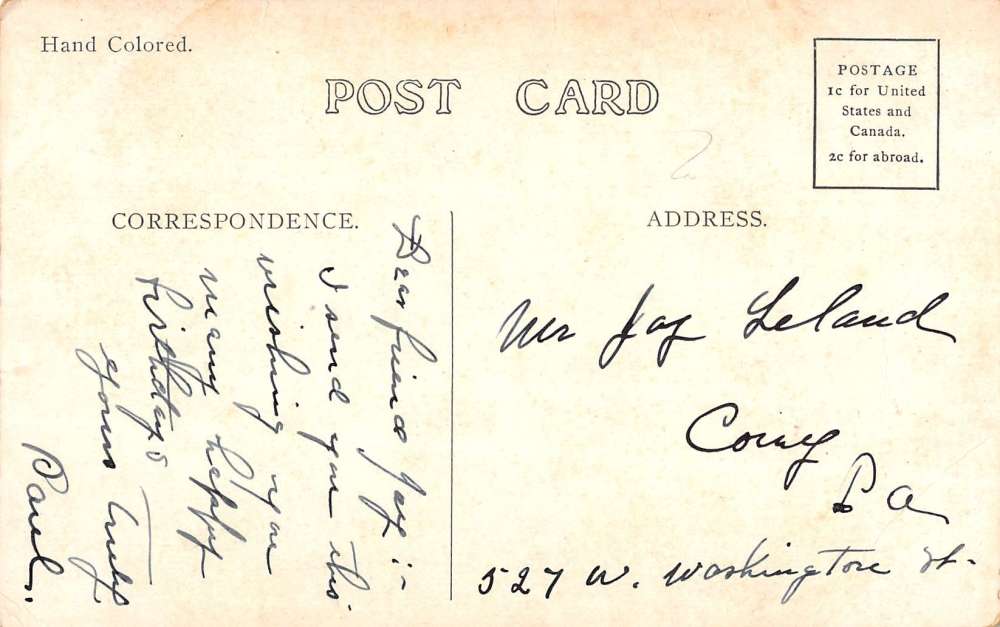 Hand Colored.
POST CARD
POSTAGE
1c for United
States and
Canada.
2c for abroad.
CORRESPONDENCE.
Dear friend Jay :-
I send you this
wishing you
many happy
birthdays
yours truly
Paul.
ADDRESS.
Mr Jay Leland
Corry
Pa
527 W. Washington St.